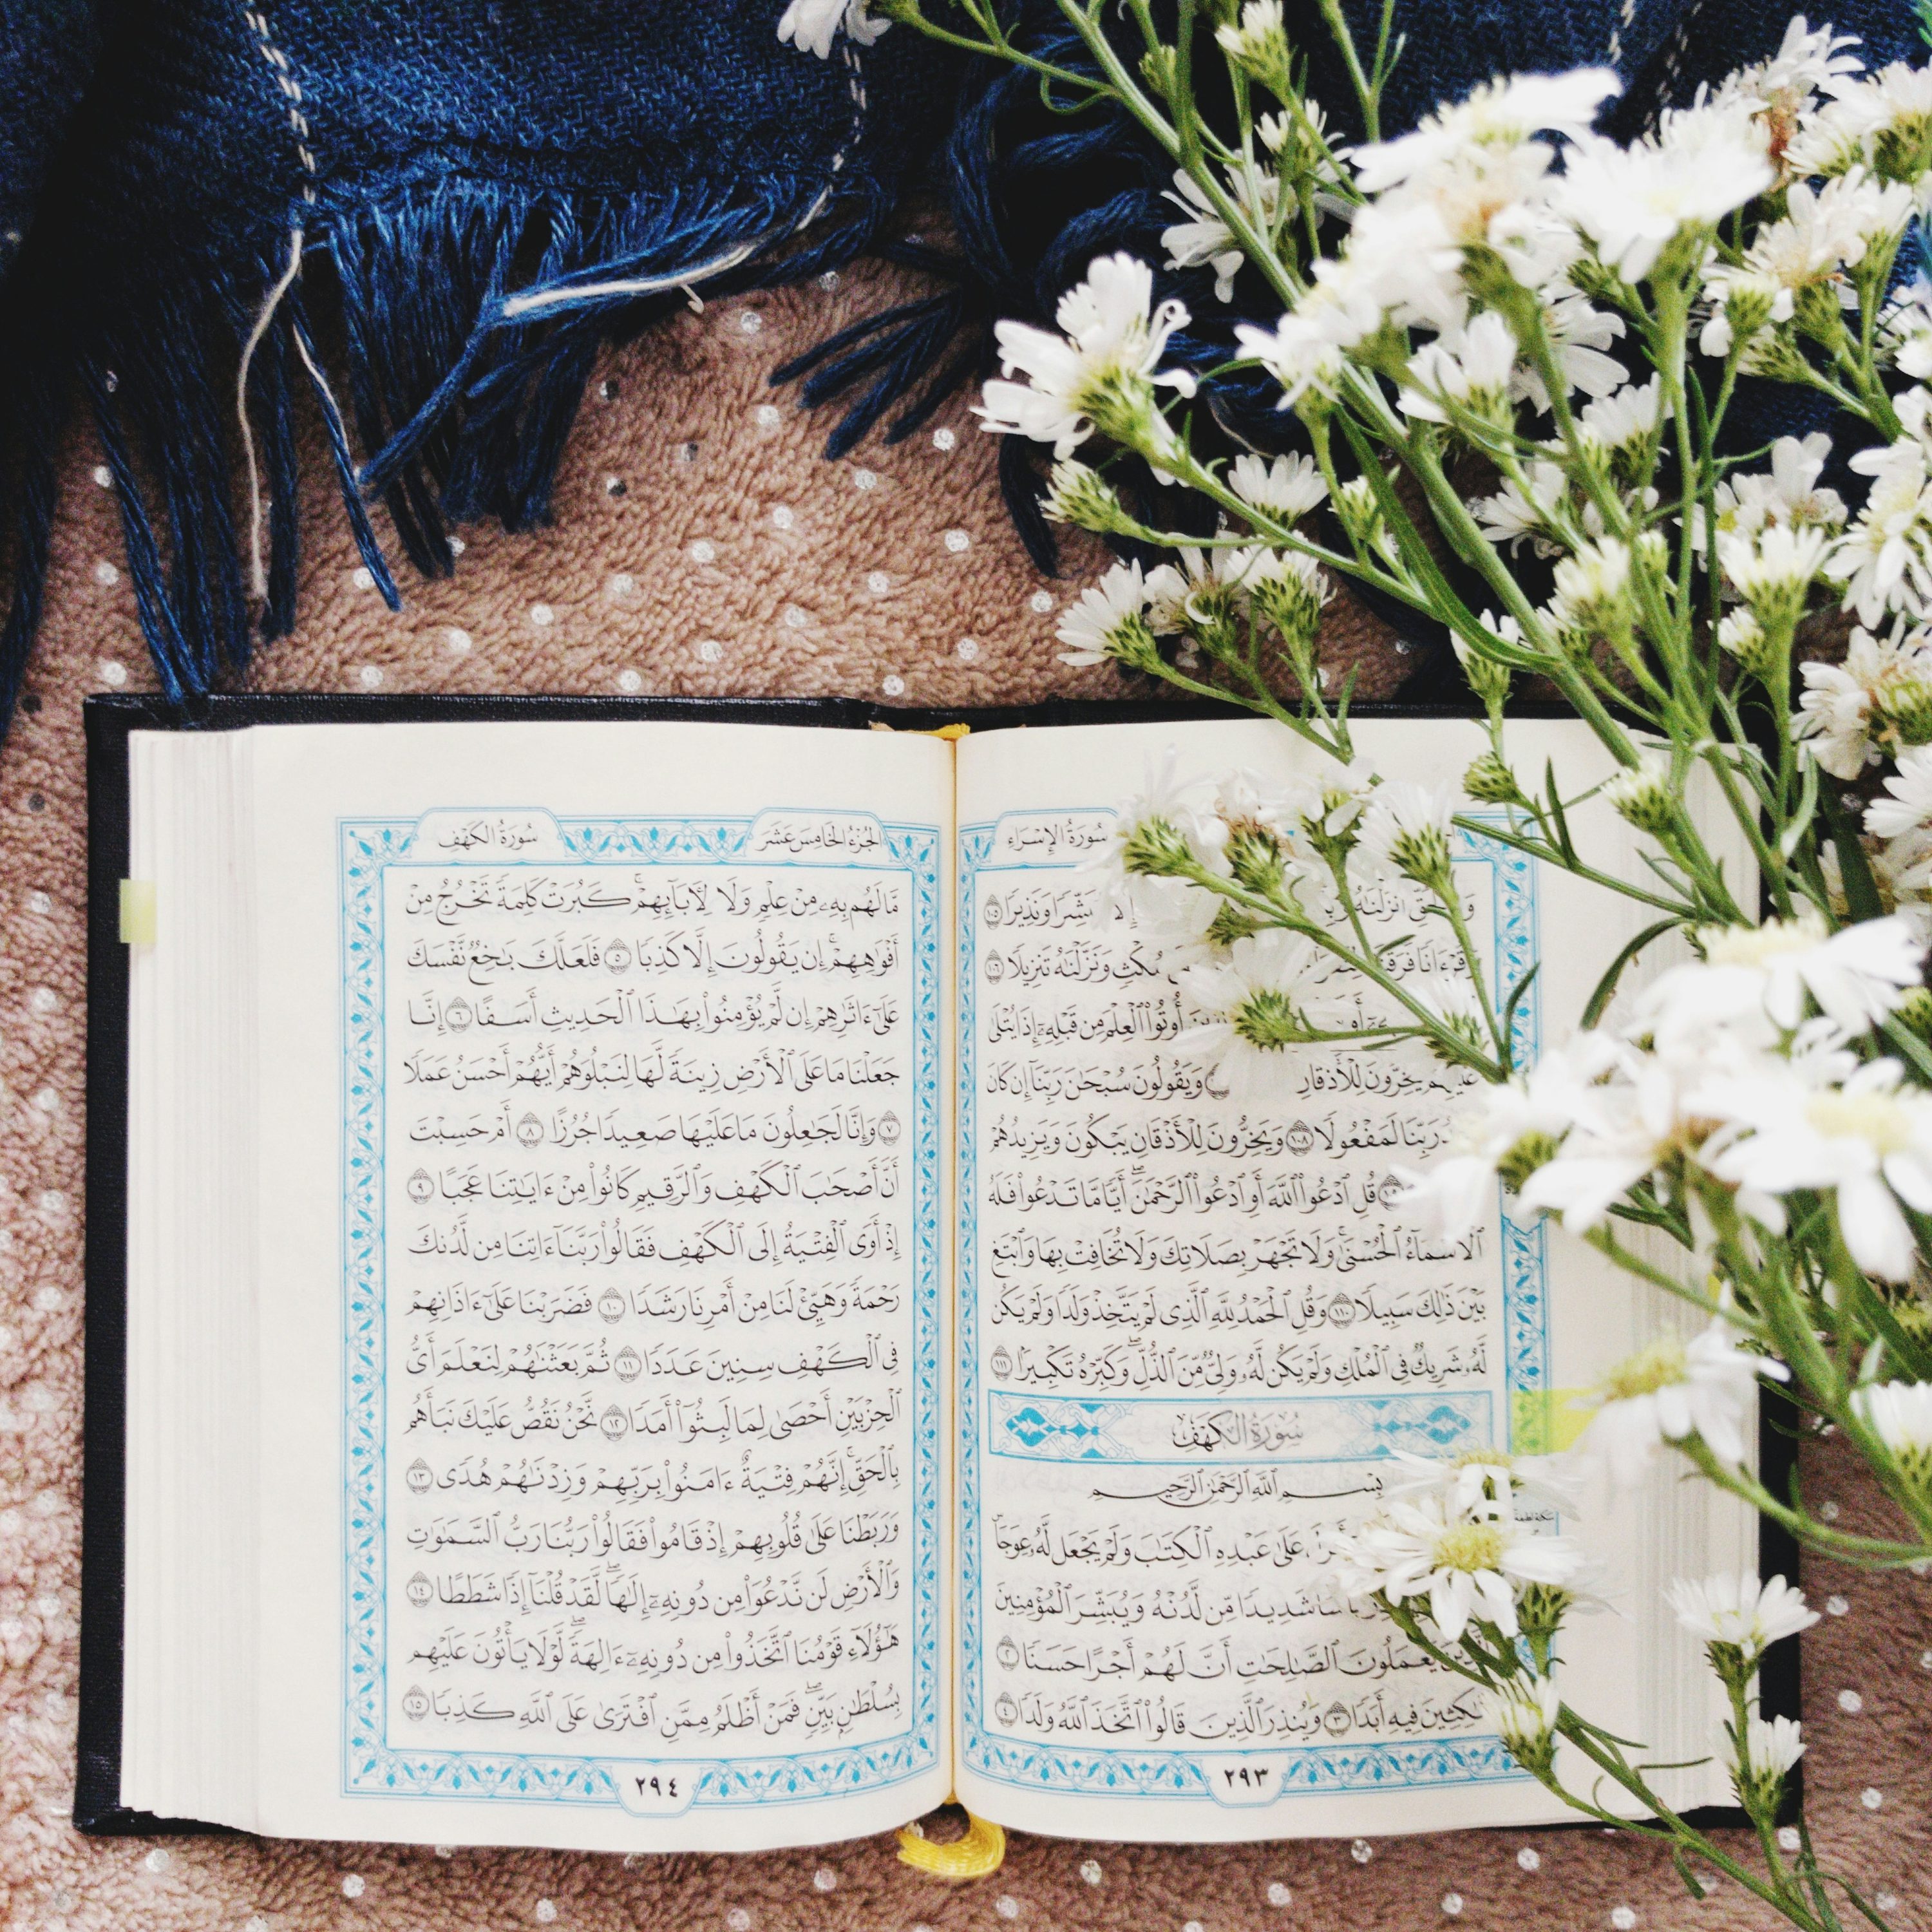 سُورَةُ الإِسْرَاءِ
أَنزَلْنَٰهُ إِلَّا مُبَشِّرًا وَنَذِيرًا ١٠٥
مُكْثٍ وَنَزَّلْنَٰهُ تَنزِيلًا ١٠٦
أُوتُوا۟ ٱلْعِلْمَ مِن قَبْلِهِۦٓ إِذَا يُتْلَىٰ
عَلَيْهِمْ يَخِرُّونَ لِلْأَذْقَانِ وَيَقُولُونَ سُبْحَٰنَ رَبِّنَآ إِن كَانَ
رَبِّنَا لَمَفْعُولًا ١٠٨ وَيَخِرُّونَ لِلْأَذْقَانِ يَبْكُونَ وَيَزِيدُهُمْ
قُلِ ٱدْعُوا۟ ٱللَّهَ أَوِ ٱدْعُوا۟ ٱلرَّحْمَٰنَ ۖ أَيًّا مَّا تَدْعُوا۟ فَلَهُ
ٱلْأَسْمَآءُ ٱلْحُسْنَىٰ ۚ وَلَا تَجْهَرْ بِصَلَاتِكَ وَلَا تُخَافِتْ بِهَا وَٱبْتَغِ
بَيْنَ ذَٰلِكَ سَبِيلًا ١١٠ وَقُلِ ٱلْحَمْدُ لِلَّهِ ٱلَّذِى لَمْ يَتَّخِذْ وَلَدًا وَلَمْ يَكُن
لَّهُۥ شَرِيكٌ فِى ٱلْمُلْكِ وَلَمْ يَكُن لَّهُۥ وَلِىٌّ مِّنَ ٱلذُّلِّ ۖ وَكَبِّرْهُ تَكْبِيرًۢا ١١١
سُورَةُ الكَهْفِ
بِسْمِ ٱللَّهِ ٱلرَّحْمَٰنِ ٱلرَّحِيمِ
عَلَىٰ عَبْدِهِ ٱلْكِتَٰبَ وَلَمْ يَجْعَل لَّهُۥ عِوَجَا
شَدِيدًا مِّن لَّدُنْهُ وَيُبَشِّرَ ٱلْمُؤْمِنِينَ
يَعْمَلُونَ ٱلصَّٰلِحَٰتِ أَنَّ لَهُمْ أَجْرًا حَسَنًا ٢
مَّٰكِثِينَ فِيهِ أَبَدًا ٣ وَيُنذِرَ ٱلَّذِينَ قَالُوا۟ ٱتَّخَذَ ٱللَّهُ وَلَدًا ٤
٢٩٣
الجُزْءُ الخَامِسَ عَشَرَ
سُورَةُ الكَهْفِ
مَّا لَهُم بِهِۦ مِنْ عِلْمٍ وَلَا لِـَٔابَآئِهِمْ ۚ كَبُرَتْ كَلِمَةً تَخْرُجُ مِنْ
أَفْوَٰهِهِمْ ۚ إِن يَقُولُونَ إِلَّا كَذِبًا ٥ فَلَعَلَّكَ بَٰخِعٌ نَّفْسَكَ
عَلَىٰٓ ءَاثَٰرِهِمْ إِن لَّمْ يُؤْمِنُوا۟ بِهَٰذَا ٱلْحَدِيثِ أَسَفًا ٦ إِنَّا
جَعَلْنَا مَا عَلَى ٱلْأَرْضِ زِينَةً لَّهَا لِنَبْلُوَهُمْ أَيُّهُمْ أَحْسَنُ عَمَلًا
٧ وَإِنَّا لَجَٰعِلُونَ مَا عَلَيْهَا صَعِيدًا جُرُزًا ٨ أَمْ حَسِبْتَ
أَنَّ أَصْحَٰبَ ٱلْكَهْفِ وَٱلرَّقِيمِ كَانُوا۟ مِنْ ءَايَٰتِنَا عَجَبًا ٩
إِذْ أَوَى ٱلْفِتْيَةُ إِلَى ٱلْكَهْفِ فَقَالُوا۟ رَبَّنَآ ءَاتِنَا مِن لَّدُنكَ
رَحْمَةً وَهَيِّئْ لَنَا مِنْ أَمْرِنَا رَشَدًا ١٠ فَضَرَبْنَا عَلَىٰٓ ءَاذَانِهِمْ
فِى ٱلْكَهْفِ سِنِينَ عَدَدًا ١١ ثُمَّ بَعَثْنَٰهُمْ لِنَعْلَمَ أَىُّ
ٱلْحِزْبَيْنِ أَحْصَىٰ لِمَا لَبِثُوٓا۟ أَمَدًا ١٢ نَّحْنُ نَقُصُّ عَلَيْكَ نَبَأَهُم
بِٱلْحَقِّ ۚ إِنَّهُمْ فِتْيَةٌ ءَامَنُوا۟ بِرَبِّهِمْ وَزِدْنَٰهُمْ هُدًى ١٣
وَرَبَطْنَا عَلَىٰ قُلُوبِهِمْ إِذْ قَامُوا۟ فَقَالُوا۟ رَبُّنَا رَبُّ ٱلسَّمَٰوَٰتِ
وَٱلْأَرْضِ لَن نَّدْعُوَا۟ مِن دُونِهِۦٓ إِلَٰهًا ۖ لَّقَدْ قُلْنَآ إِذًا شَطَطًا ١٤
هَٰٓؤُلَآءِ قَوْمُنَا ٱتَّخَذُوا۟ مِن دُونِهِۦٓ ءَالِهَةً ۖ لَّوْلَا يَأْتُونَ عَلَيْهِم
بِسُلْطَٰنٍۭ بَيِّنٍ ۖ فَمَنْ أَظْلَمُ مِمَّنِ ٱفْتَرَىٰ عَلَى ٱللَّهِ كَذِبًا ١٥
٢٩٤